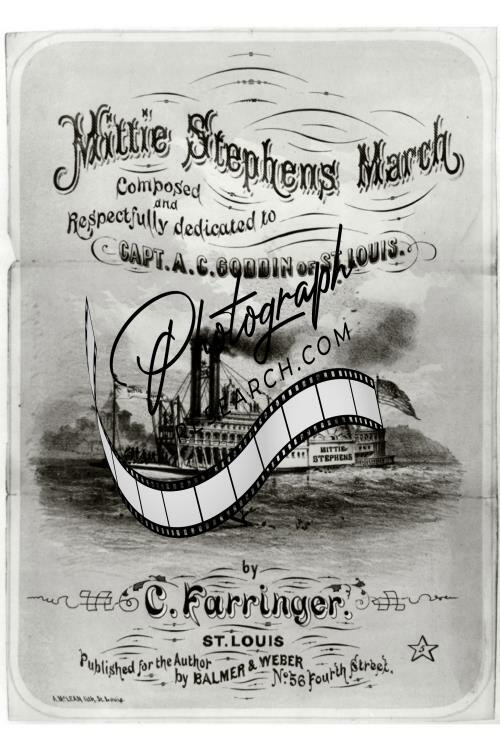 Mittie Stephens March
Composed
and
Respectfully dedicated to
CAPT. A. C. GODDIN OF ST. LOUIS.
Photograph
ARCH.COM
MITTIE
STEPHENS
by
C. Farringer.
ST. LOUIS
Published for the Author
by BALMER & WEBER
No 56 Fourth Street.
5
A. McLEAN, lith, St. Louis